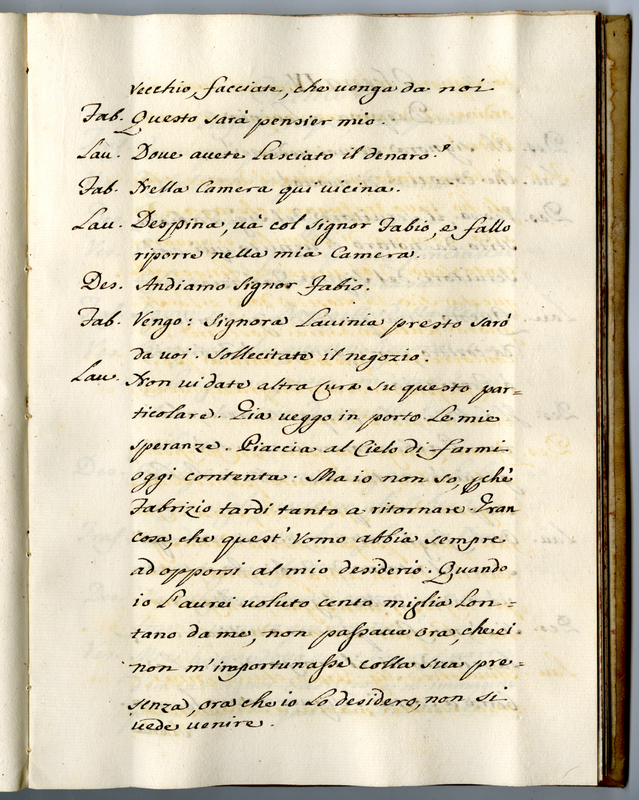 vecchio, facciate, che venga da noi
Fab. Questo sarà pensier mio.
Lau. Dove avete lasciato il denaro?
Fab. Nella Camera qui vicina.
Lau. Despina, và col Signor Fabio, e fallo
riporre nella mia Camera.
Des. Andiamo Signor Fabio.
Fab. Vengo: Signora Lavinia presto sarò
da voi. Sollecitate il negozio.
Lau. Non vi date altra Cura su questo par=
ticolare. Già veggo in porto le mie
speranze. Piaccia al Cielo di farmi
oggi contenta. Ma io non so, pchè
Fabrizio tardi tanto a ritornare. Gran
cosa, che quest' Vomo abbia sempre
ad opporsi al mio desiderio. Quando
io l'aurei voluto cento miglia lon=
tano da me, non passava ora, che ei
non m'importunasse colla sua pre=
senza, ora che io lo desidero, non si
vede venire.